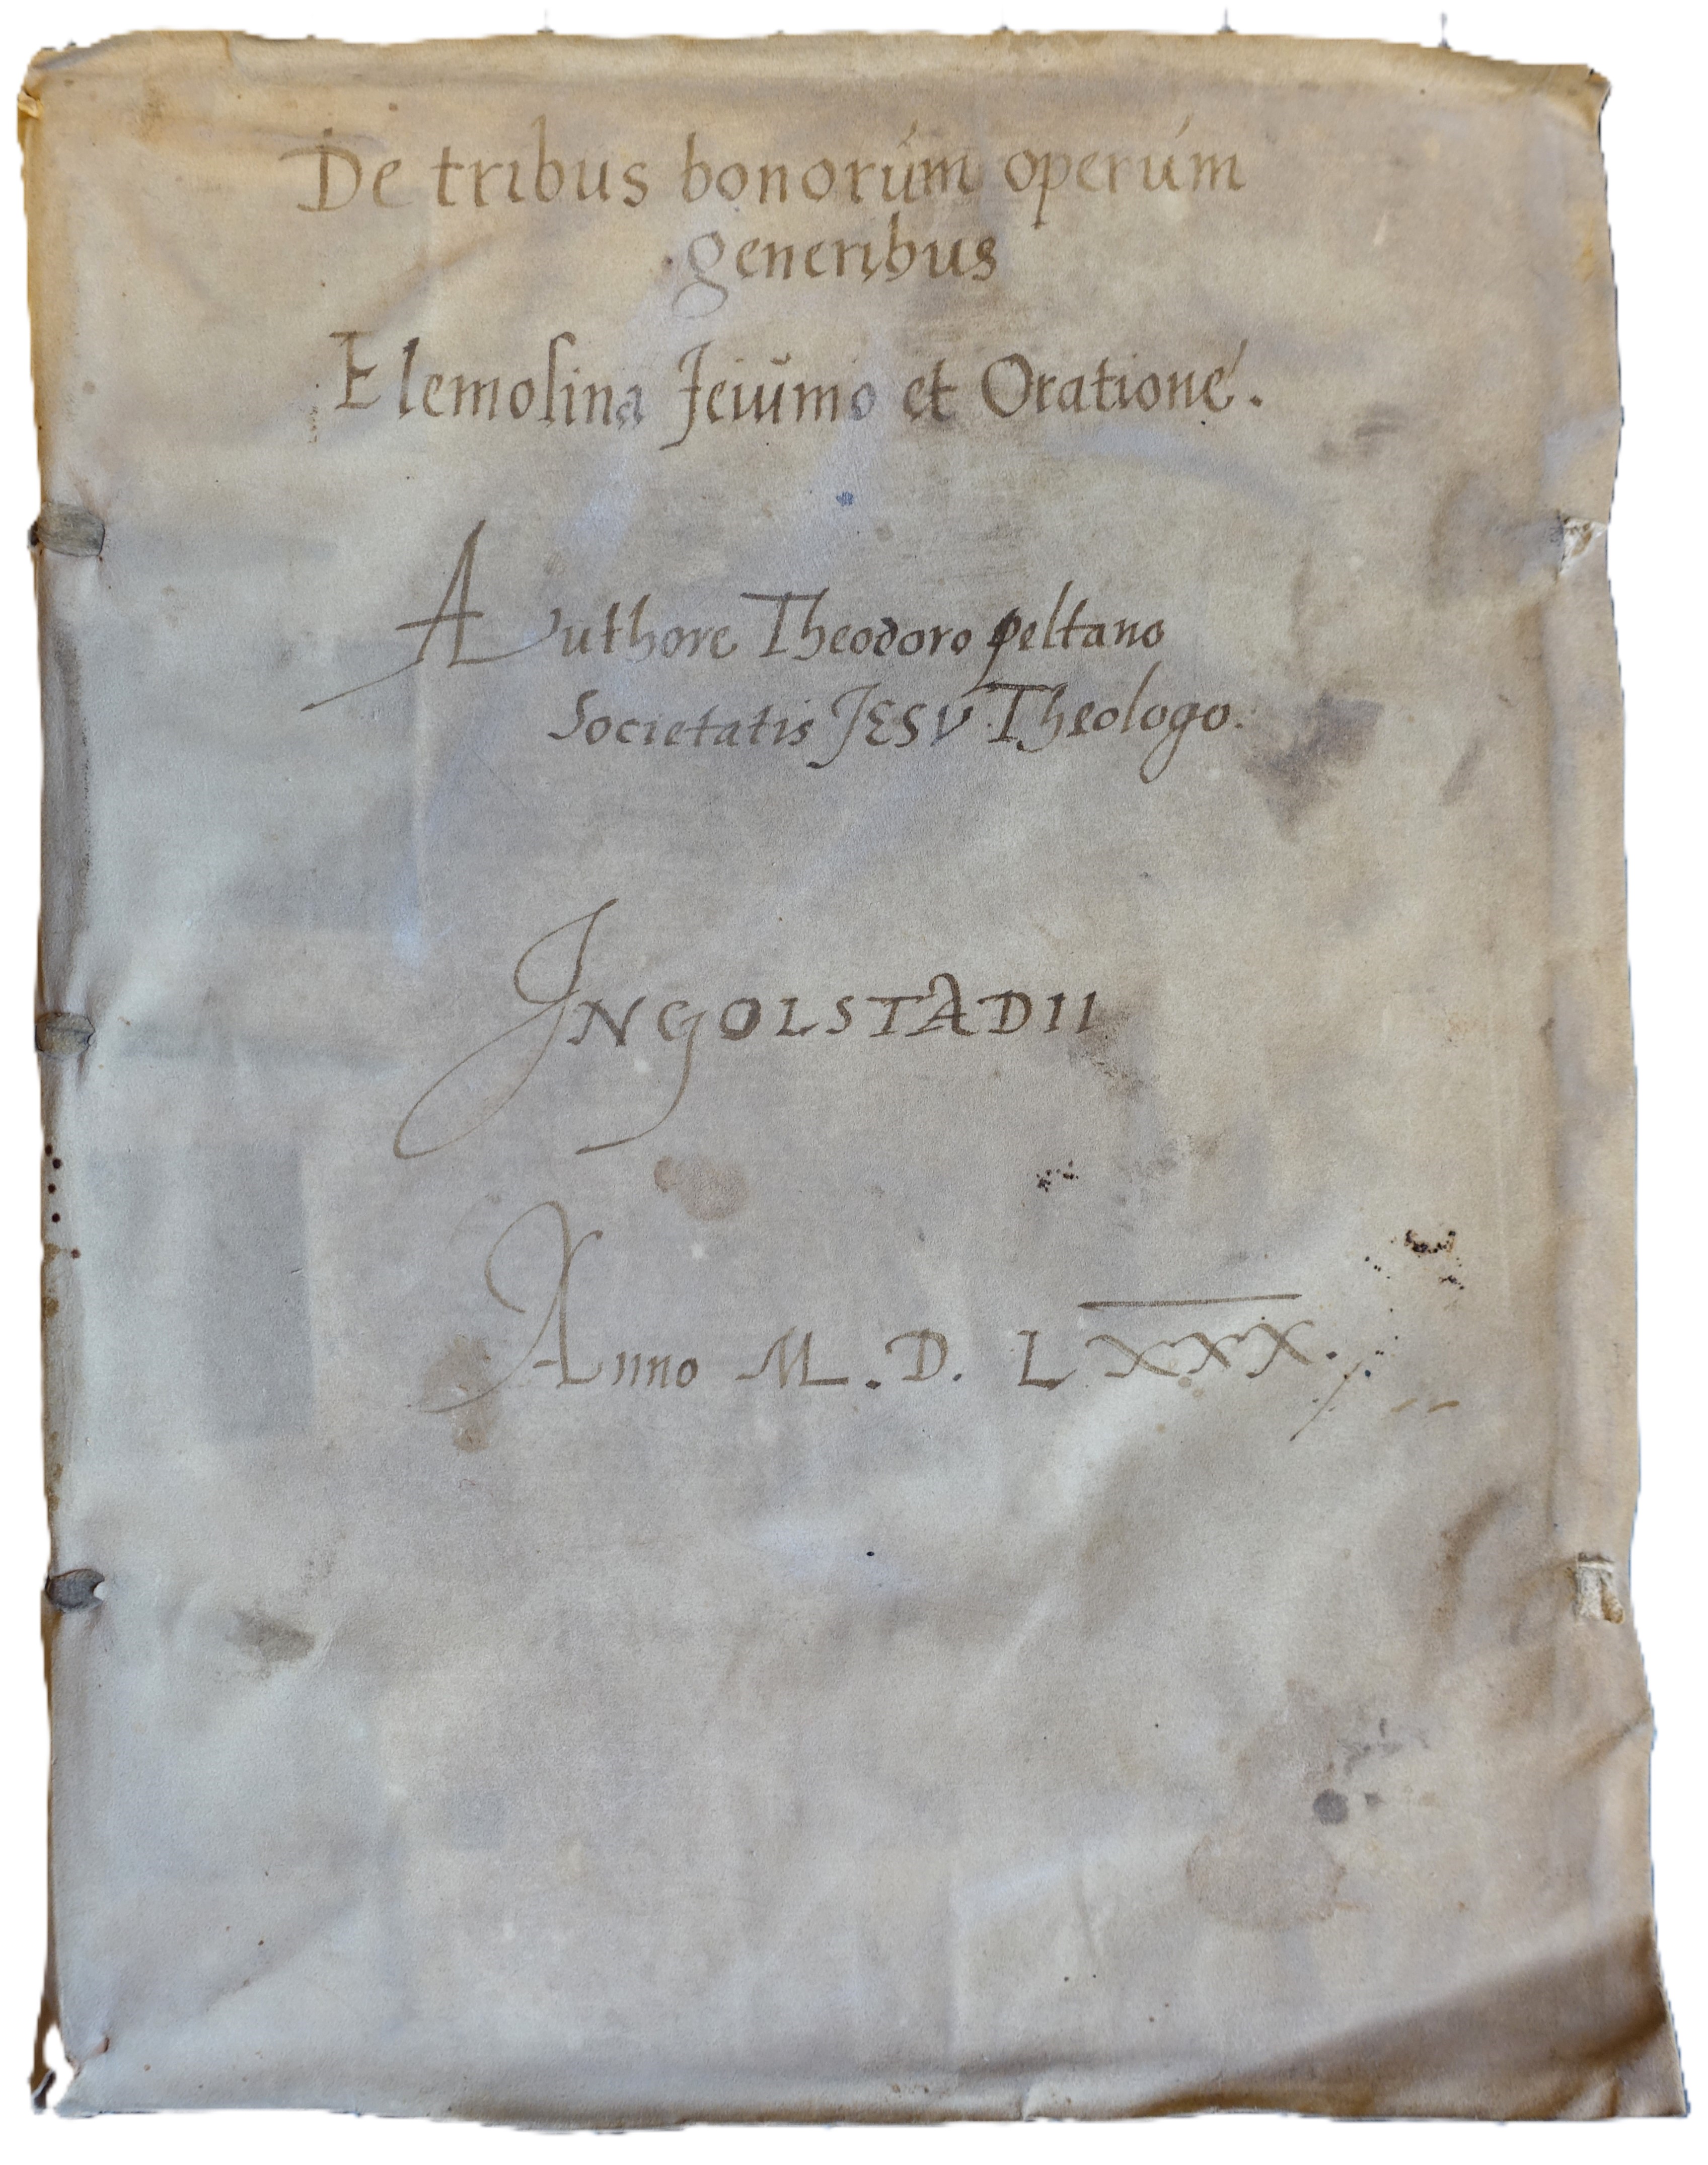 De tribus bonorúm operúm
generibus
Elemosina Jeiunio et Oratione.
Authore Theodoro peltano
Societatis JESV Theologo.
INGOLSTADII
Anno M. D. LXXX.